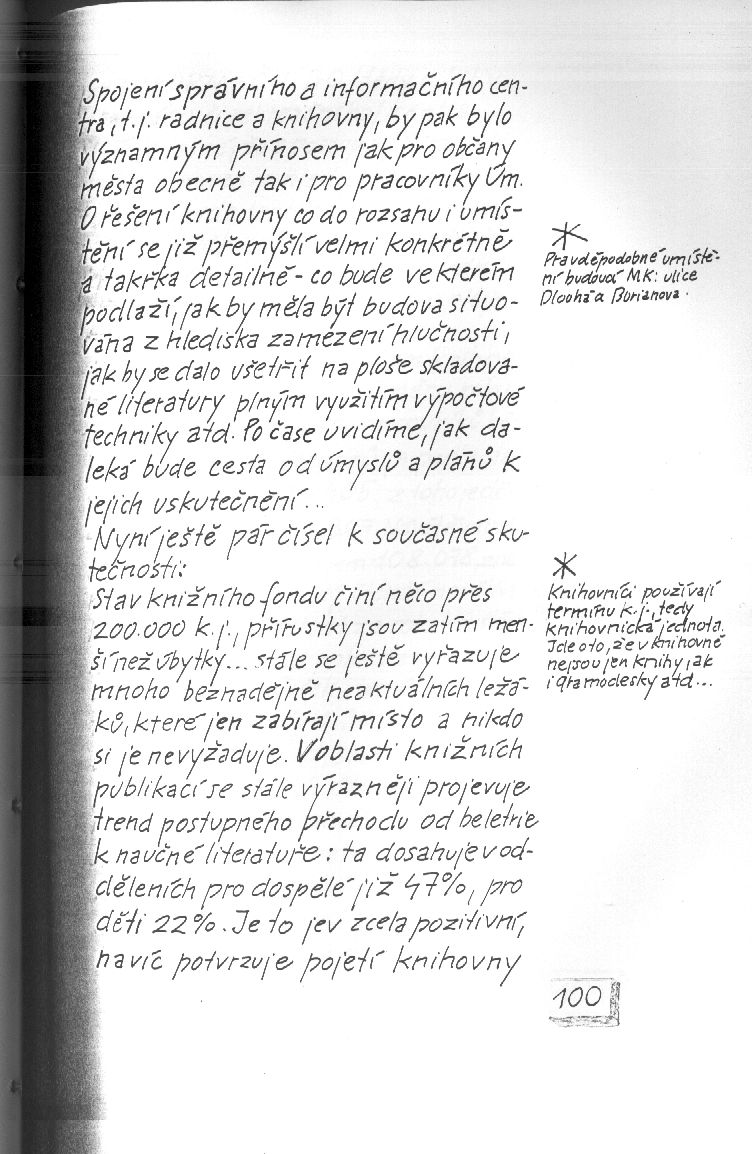 Spojení správního a informačního cen-
tra, t.j. radnice a knihovny, by pak bylo
významným přínosem jak pro občany
města obecně tak i pro pracovníky Úm.
O řešení knihovny co do rozsahu i umís-
tění se již přemýšlí velmi konkrétně
a takřka detailně - co bude ve kterém
podlaží, jak by měla být budova situo-
vána z hlediska zamezení hlučnosti,
jak by se dalo ušetřit na ploše skladova-
né literatury plným využitím výpočtové
techniky atd. Po čase uvidíme, jak da-
leká bude cesta od úmyslů a plánů k
jejich uskutečnění...
Nyní ještě pár čísel k současné sku-
tečnosti:
Stav knižního fondu činí něco přes
200.000 k.j., přírustky jsou zatím men-
ší než úbytky... stále se ještě vyřazuje
mnoho beznadějně neaktuálních ležá-
ků, které jen zabírají místo a nikdo
si je nevyžaduje. V oblasti knižních
publikací se stále výrazněji projevuje
trend postupného přechodu od beletrie
k naučné literatuře: ta dosahuje v od-
děleních pro dospělé již 47%, pro
děti 22%. Je to jev zcela pozitivní,
navíc potvrzuje pojetí knihovny
*
Pravděpodobné umístě-
ní budoucí MK: ulice
Dlouhá a Burianova.
*
Knihovníci používají
termínu k.j., tedy
knihovnická jednota.
Jde o to, že v knihovně
nejsou jen knihy jak
i gramodesky atd...
100